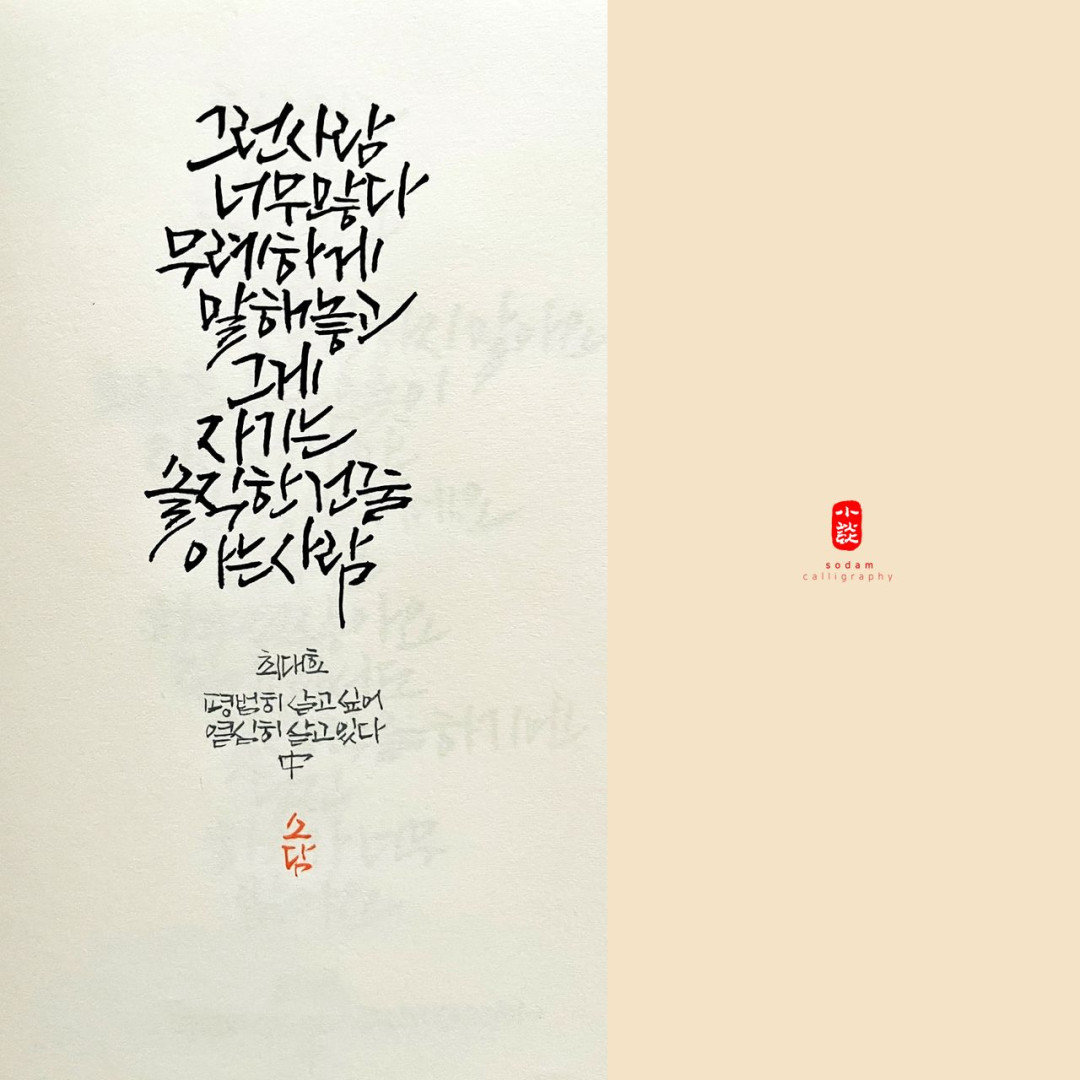 그런사람
너무많다
무례하게
말해놓고
그게
자기는
솔직한건줄
아는사람
최대호
평범히 살고싶어
열심히 살고있다
中
소
담
小
談
sodam
calligraphy